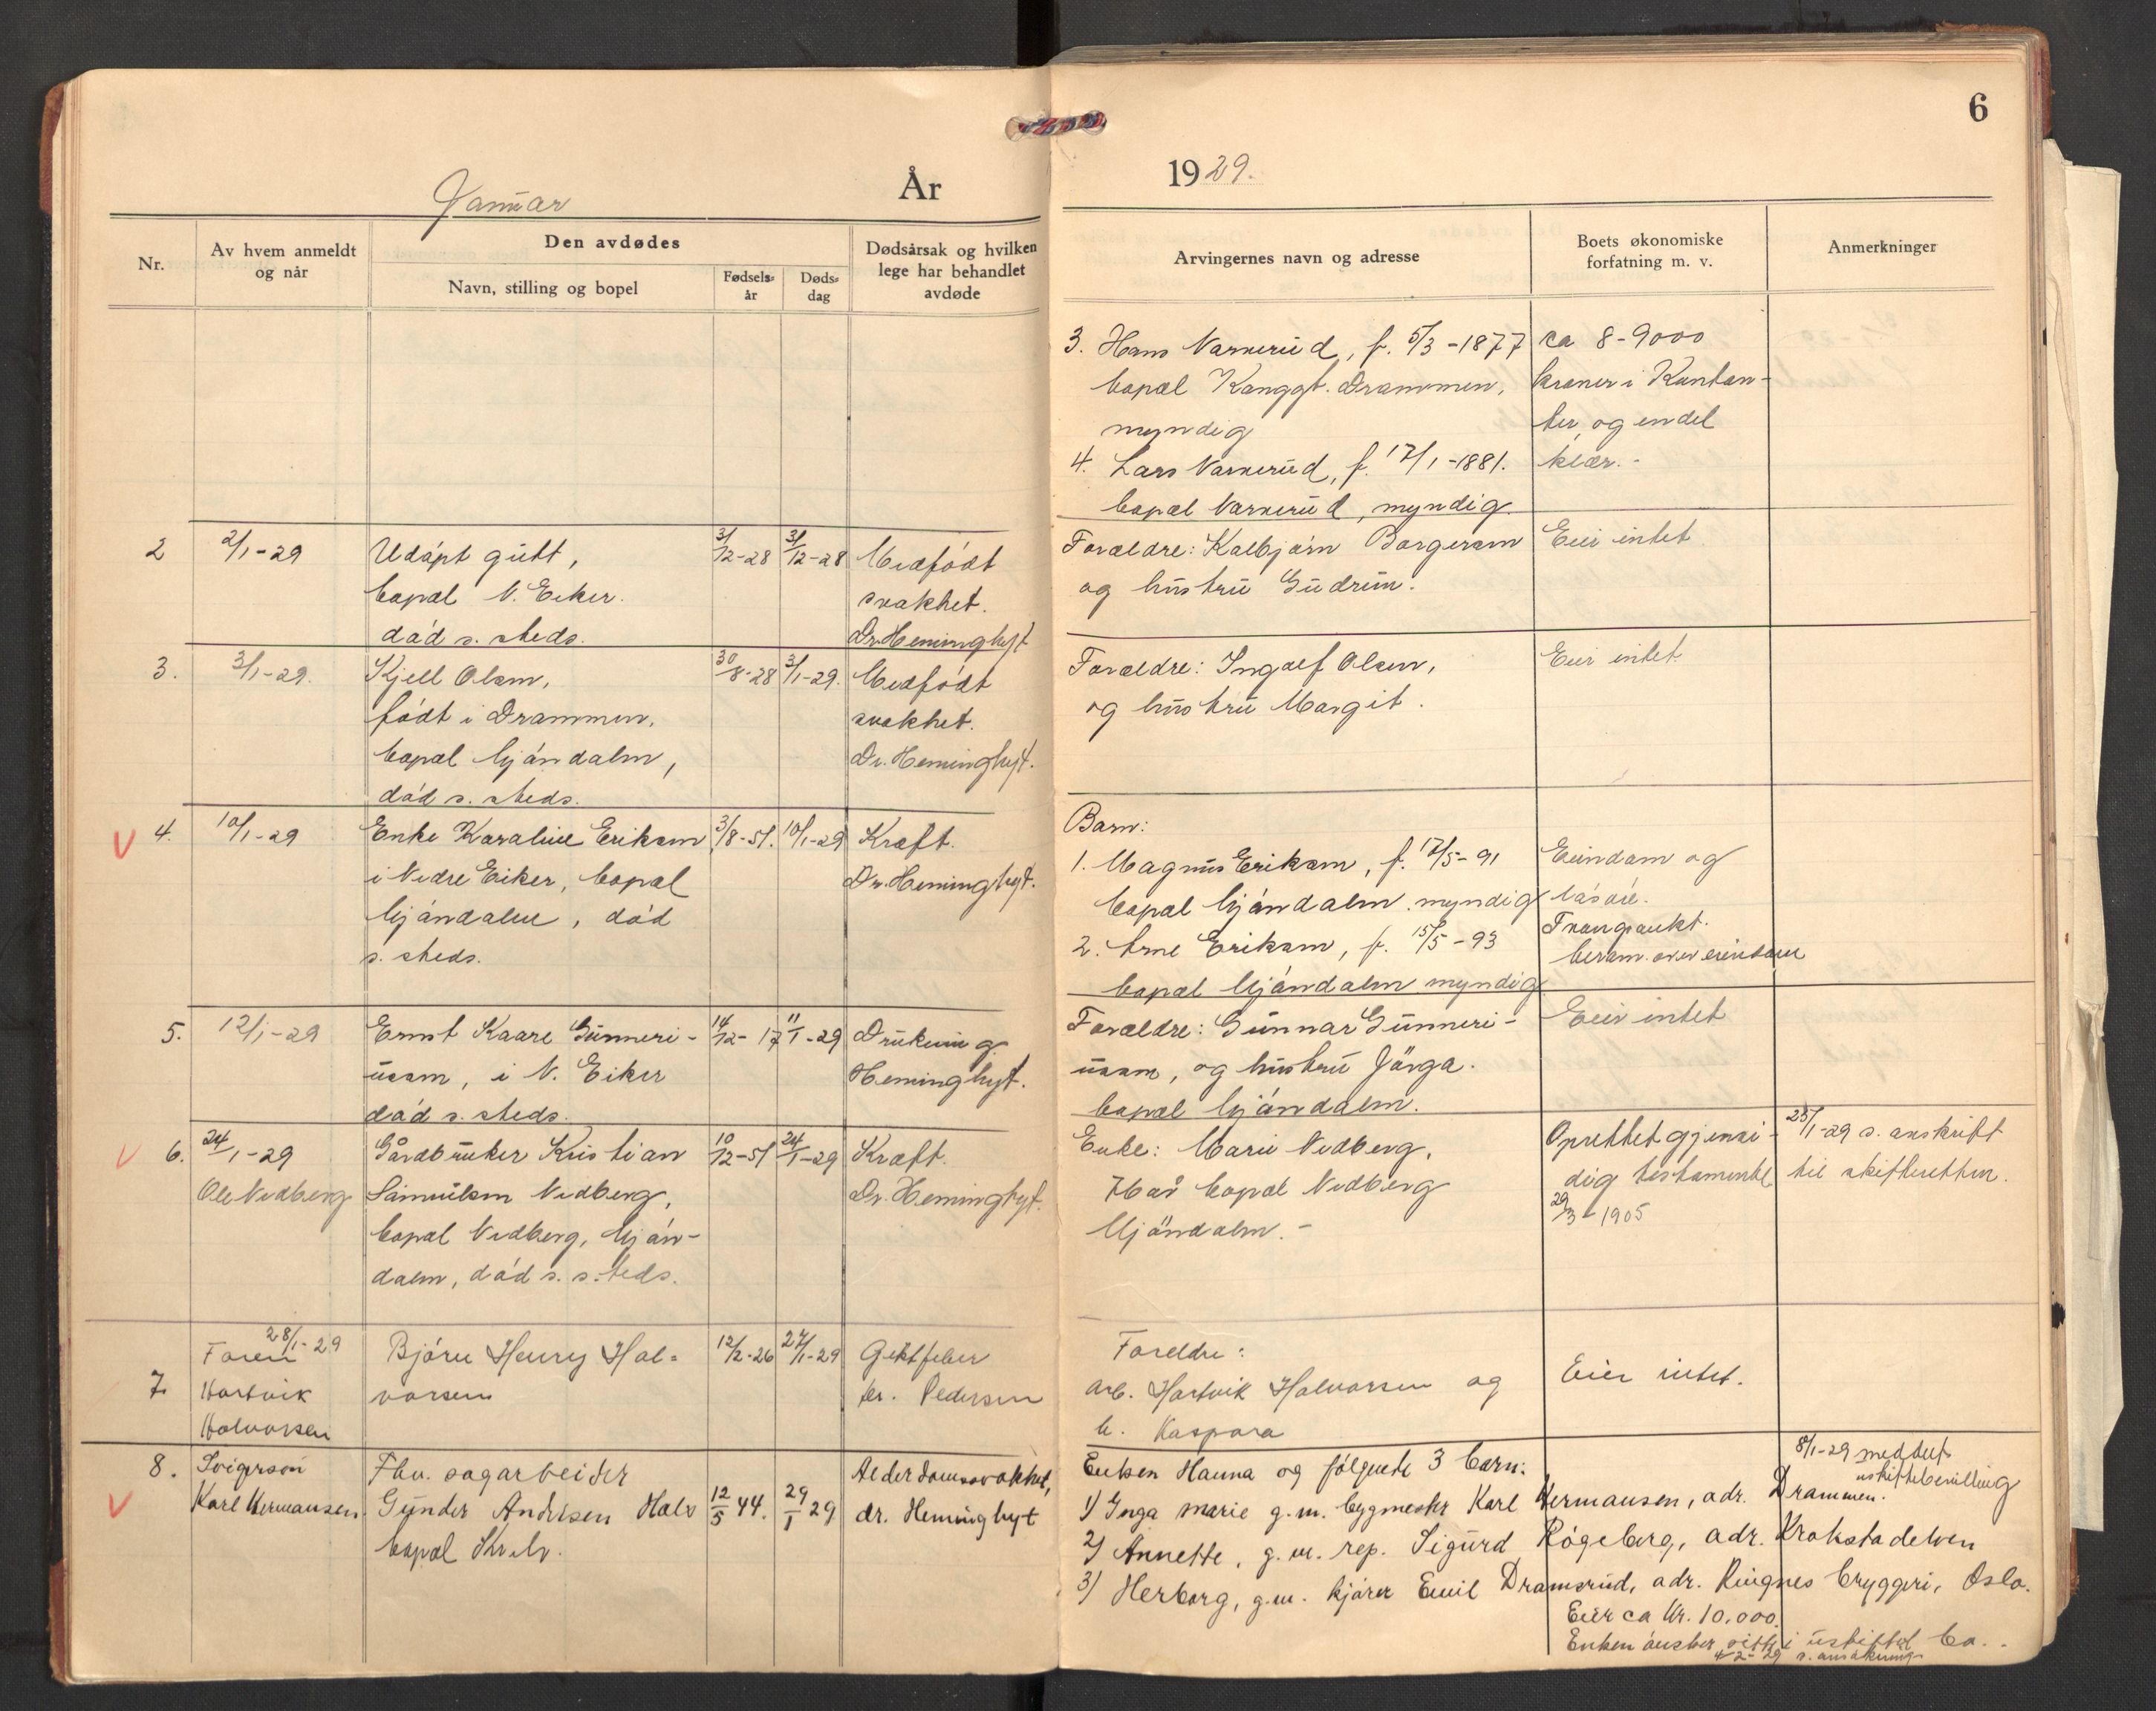 6
Januar
År
1929.
Nr.
Av hvem anmeldt
og når
Den avdødes
Navn, stilling og bopel
Fødsels-
år
Døds-
dag
Dødsårsak og hvilken
lege har behandlet
avdøde
Arvingernes navn og adresse
Boets økonomiske
forfatning m. v.
Anmerkninger
3. Hans Varnerud, f. 5/3-1877
bopæl Konggt. Drammen,
myndig
4. Lars Varnerud, f. 17/1-1881.
bopæl Varnerud, myndig.
ca 8-9000
kroner i Kontan-
ter og endel
klær.-
2
2/1-29
Udøpt gutt,
bopæl N. Eiker.
død s. steds.
31/12-28
31/12-28
Medfødt
svakhet.
Dr. Heminghyt
Foreldre: Kolbjørn Borgersen
og hustru Gudrun.
Eier intet
3.
3/1-29.
Kjell Olsen,
født i Drammen,
bopæl Mjøndalen,
død s. steds.
30/8-28
3/1-29.
Medfødt
svakhet.
Dr. Heminghyt.
Foreldre: Ingolf Olsen,
og hustru Margit.
Eier intet
V 4.
10/1-29
Enke Karoline Eriksen
i Nedre Eiker, bopæl
Mjøndalen, død
s. steds.
3/8-51.
10/1-29
Kreft.
Dr. Heminghyt.
Barn:
1. Magnus Eriksen, f. 17/5-91
bopæl Mjøndalen. myndig
2. Arne Eriksen, f. 15/5-93
bopæl Mjøndalen myndig
Eiendom og
løsøre.
Tvangsaukt.
beram. over eiendom
5.
12/1-29
Ernst Kaare Gunneri-
ussen, i N. Eiker
død s. steds.
14/12-17
11/1-29
Drukning
Heminghyt.
Foreldre: Gunnar Gunneri-
ussen, og hustru Jørga.
bopæl Mjøndalen.
Eier intet
V 6.
24/1-29
Ole Vedberg
Gårdbruker Kristian
Samuelsen Vedberg,
bopæl Vedberg, Mjøn-
dalen, død s. steds.
10/12-51
24/1-29
Kreft.
Dr. Heminghyt.
Enke: Marie Vedberg,
76 år bopæl Vedberg
Mjøndalen.-
Oprettet gjensi-
dig testamente
29/3-1905
25/1-29 s. anskrift
til skifteretten.
7.
28/1-29
Faren
Hartvik
Halvorsen
Bjørn Henry Hal-
vorsen
12/2-26
27/1-29
Giktfeber
dr. Pedersen
Foreldre:
arb. Hartvik Halvorsen og
h. Kaspara
Eier intet.
V 8.
Svigersøn
Karl Hermansen.
Fhv. sagarbeider
Gunder Andersen Hals
bopæl Kr.elv.
12/5 44.
29/1 29
Alderdomssvakhet,
dr. Heminghyt
Enken Hanna og følgende 3 barn:
1) Inga Marie g.m. bygmester Karl Hermansen, adr. Drammen.
2) Annette, g.m. rep. Sigurd Røgeberg, adr. Krokstadelven
3) Herborg, g.m. kjører Emil Dramsrud, adr. Ringnes bryggeri, Oslo.
8/1-29 meddelt
uskiftebevilling
Eier ca kr. 10.000.
Enken ønsker sitte i uskiftet bo.-
4-2-29 s. ansøkning.